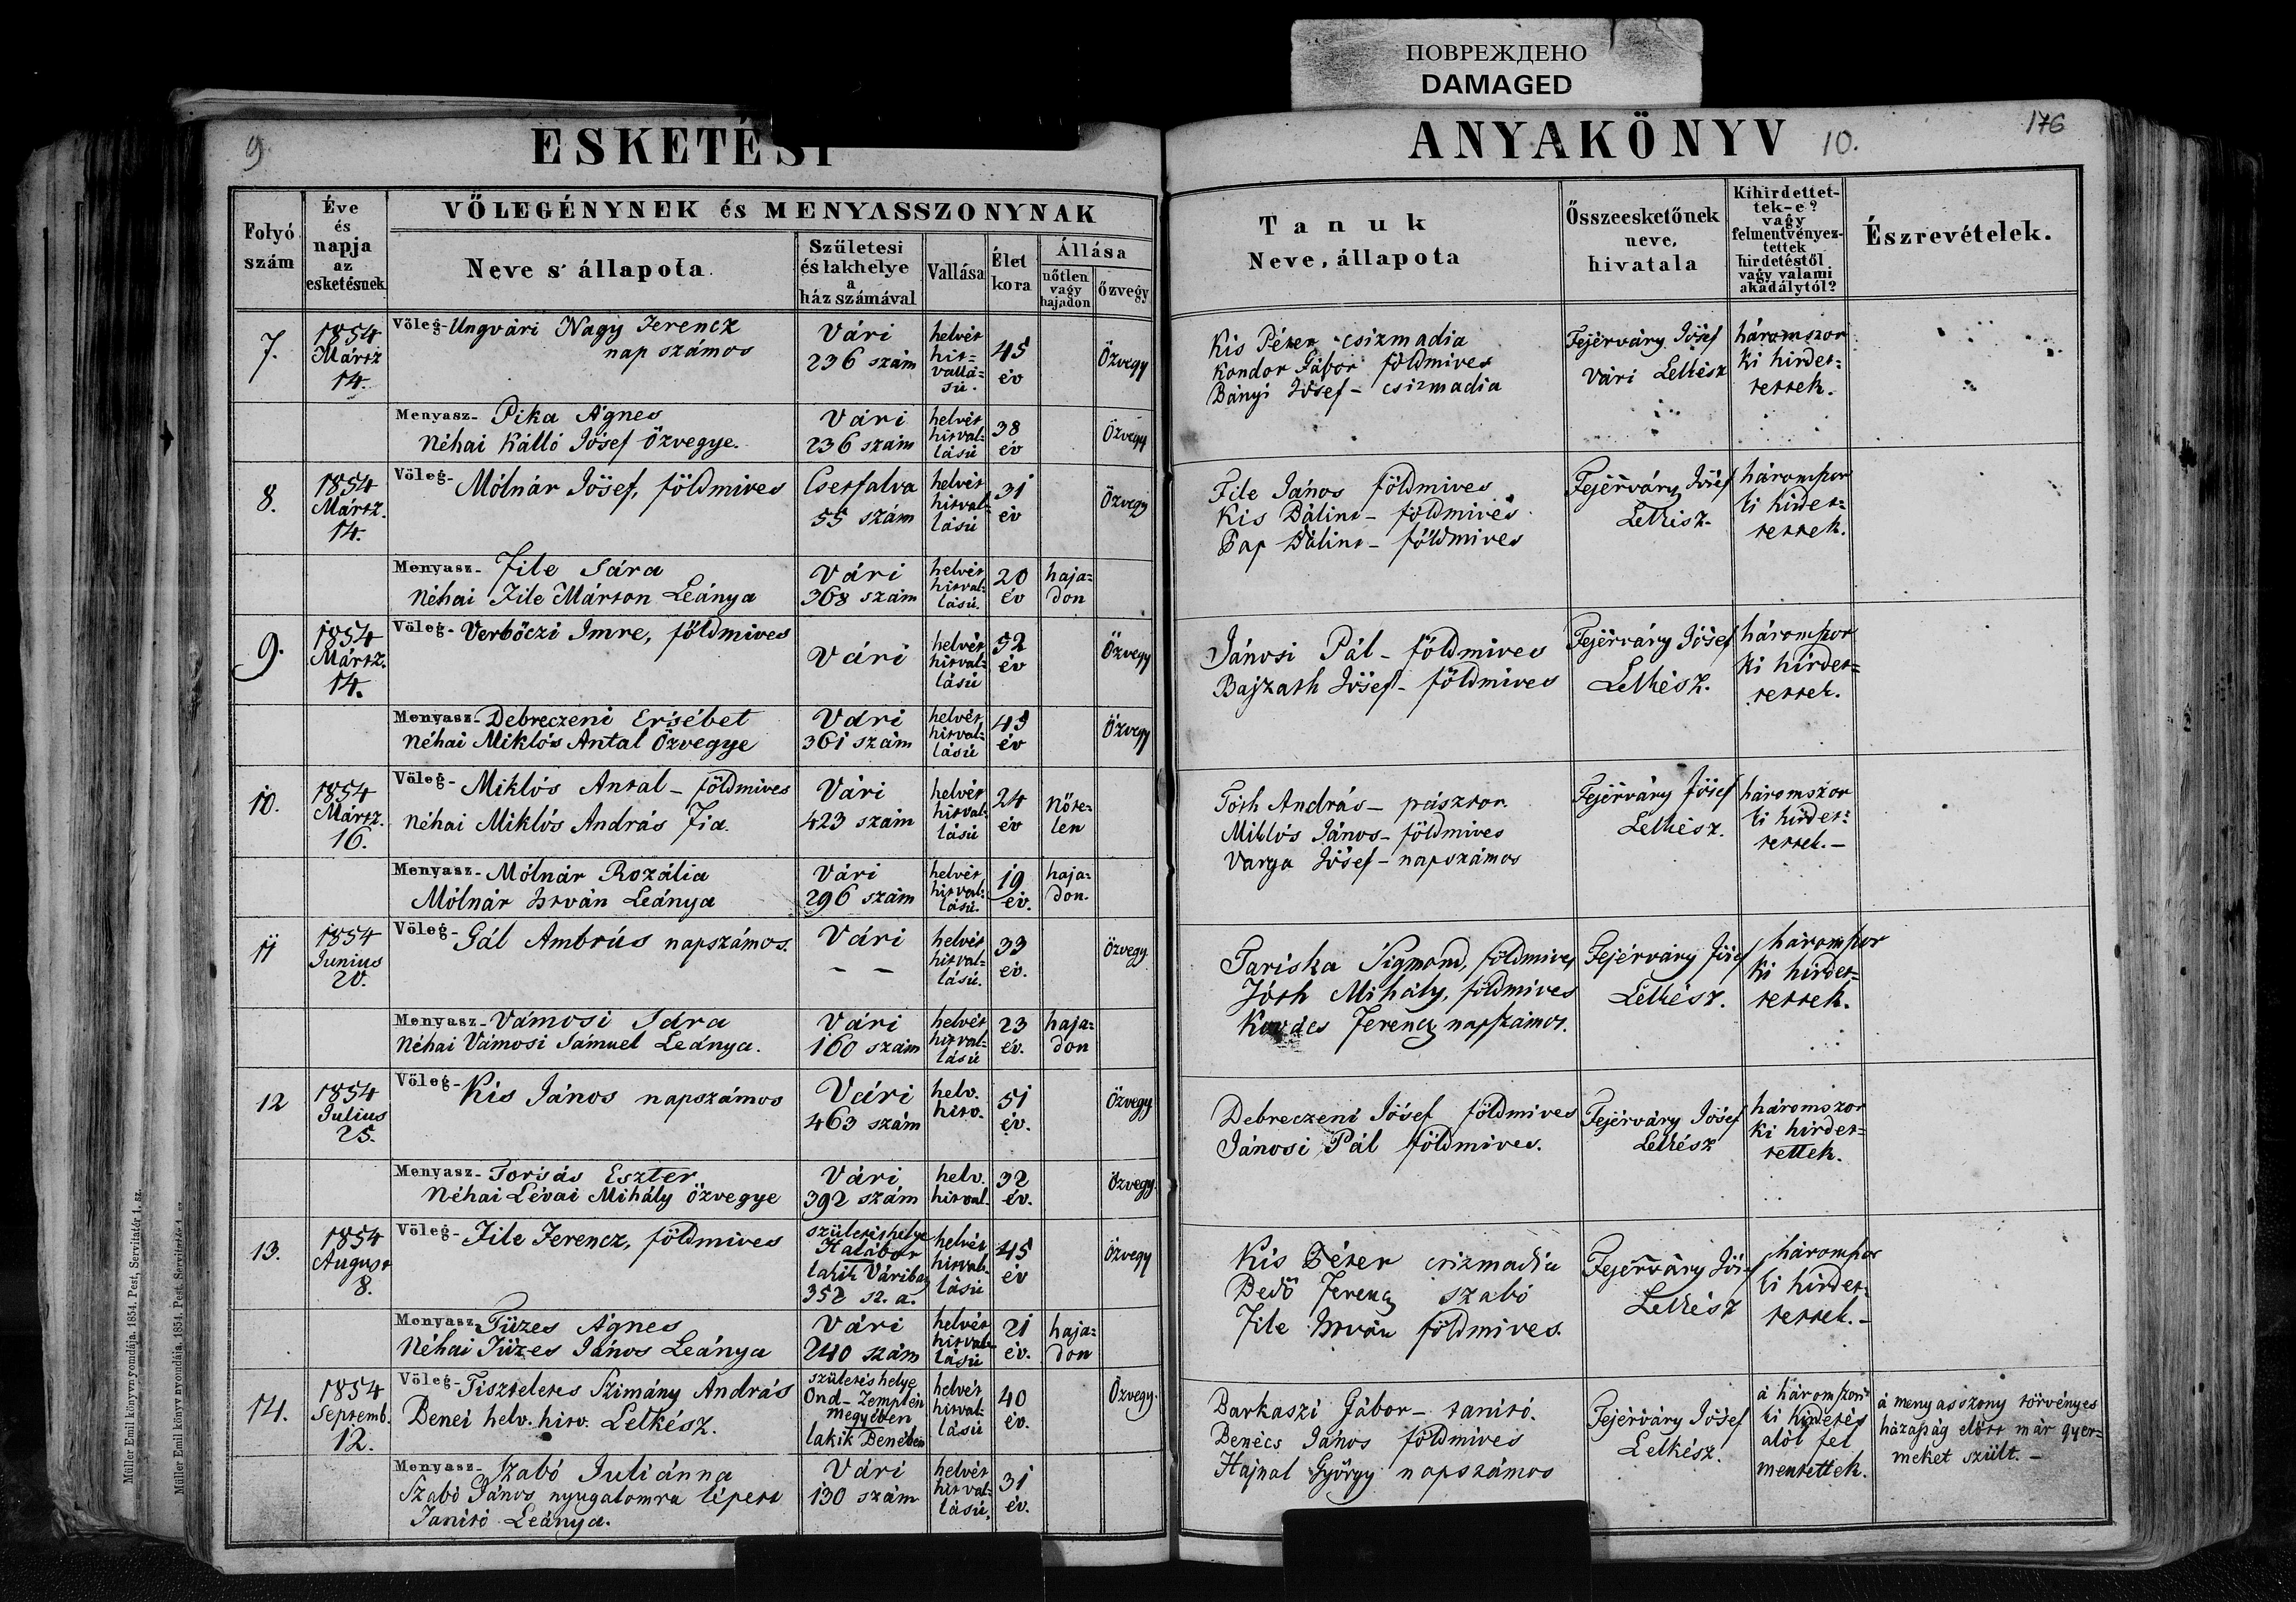 ПОВРЕЖДЕНО
DAMAGED
9
ESKETÉSI
ANYAKÖNYV 10.
176
Folyó szám
Éve és napja az esketésnek
VŐLEGÉNYNEK és MENYASSZONYNAK
Neve s' állapota
Születesi és lakhelye a ház számával
Vallása
Élet kora
Állása
nőtlen vagy hajadon
özvegy
Tanuk
Neve, állapota
Összeesketőnek neve, hivatala
Kihirdettet-tek-e? vagy felmentvényez-tettek hirdetéstől vagy valami akadálytól?
Észrevételek.
7. 1854 Mártz 14.
Völeg- Ungvári Nagy Ferencz
nap számos
Vári 236 szám
helvét hit-vallá-sú.
45 év
Özvegy
Kis Péter csizmadia
Kondor Gábor földmives
Bányi Jósef - csizmadia
Fejérváry Jósef
Vári Lelkész
háromszor
ki hirdet=
tettek.
Menyasz- Pika Ágnes
Néhai Kálló Jósef Özvegye.
Vári 236 szám
helvét hitval=lású
38 év
Özvegy
8. 1854 Mártz. 14.
Völeg- Mólnár Jósef, földmives
Csetfalva 55 szám
helvét hitval=lású
31 év
Özvegy
File János földmives
Kis Bálint - földmives
Pap Bálint - földmives
Fejérváry Jósef
Lelkész.
háromszor
ki hirdet=
tettek.
Menyasz- File Sára
Néhai File Márton Leánya
Vári 368 szám
helvét hitval=lású.
20 év
haja=don
9. 1854 Mártz. 14.
Völeg- Verbőczi Imre, földmives
Vári
helvét hitval=lású
52 év
Özvegy
Jánosi Pál - földmives
Bajzath Jósef - földmives
Fejérváry Jósef
Lelkész.
háromszor
ki hirdet=
tettek.
Menyasz- Debreczeni Ersébet
Néhai Miklós Antal Özvegye
Vári 361 szám
helvét hitval=lású
45 év
Özvegy
10. 1854 Mártz. 16.
Völeg- Miklós Antal - földmives
Néhai Miklós András Fia.
Vári 423 szám
helvét hitval=lású
24 év
Nőte-len
Tóth András - pásztor.
Miklós János - földmives
Varga Jósef - napszámos
Fejérváry Jósef
Lelkész.
háromszor
ki hirdet=
tettek. -
Menyasz- Mólnár Rozália
Mólnár István Leánya
Vári 296 szám
helvét hitval=lású.
19 év.
haja=don.
11 1854 Junius 20.
Völeg- Gál Ambrús napszámos.
Vári - -
helvét hitval=lású.
33 év.
Özvegy
Tariska Sigmond, földmives
Tóth Mihály, földmives
Kovács Ferencz napszámos.
Fejérváry Jósef
Lelkész.
háromszor
ki hirdet=
tettek.
Menyasz- Vámosi Sára
Néhai Vámosi Sámuel Leánya.
Vári 160 szám
helvét hitval=lású
23 év.
haja=don
12 1854 Julius 25.
Völeg- Kis János napszámos
Vári 463 szám
helv. hitv.
51 év.
Özvegy
Debreczeni Jósef földmives
Jánosi Pál földmives.
Fejérváry Jósef
Lelkész
háromszor
ki hirdet=
tettek.
Menyasz- Forsás Eszter
Néhai Lévai Mihály özvegye
Vári 392 szám
helv. hitval.
32 év.
Özvegy.
13. 1854 August 8.
Völeg- File Ferencz, földmives
születés helye Halábor
lakik Váriba 352 sz. a.
helvét hitval-lású
45 év
Özvegy
Kis Péter csizmadia
Bedő Ferencz szabó
File István földmives.
Fejérváry Jósef
Lelkész
háromszor
ki hirdet=
tettek. -
Menyasz- Füzes Ágnes
Néhai Füzes János Leánya
Vári 240 szám
helvét hitval-lású
21 év.
haja=don
14. 1854 Septemb. 12.
Völeg- Tiszteletes Szimány András
Benei helv. hitv. Lelkész.
születés helye Ond - Zemplén megyében
lakik Benében
helvét hitval=lású
40 év.
Özvegy.
Barkaszi Gábor - tanitó.
Benécs János földmives
Hajnal György napszámos
Fejérváry Jósef
Lelkész.
á háromszori
ki hirdetés
alól fel
mentettek.
á menyasszony törvényes
házasság elött már gyer=
meket szült. -
Menyasz- Szabó Juliánna
Szabó János nyugalomra lépett
Tanitó Leánya.
Vári 130 szám
helvét hitval=lású.
31 év.
Müller Emil könyvnyomdája. 1854. Pest, Servitatér 1. sz.
Müller Emil könyvnyomdája. 1854. Pest, Servitatér 1. sz.